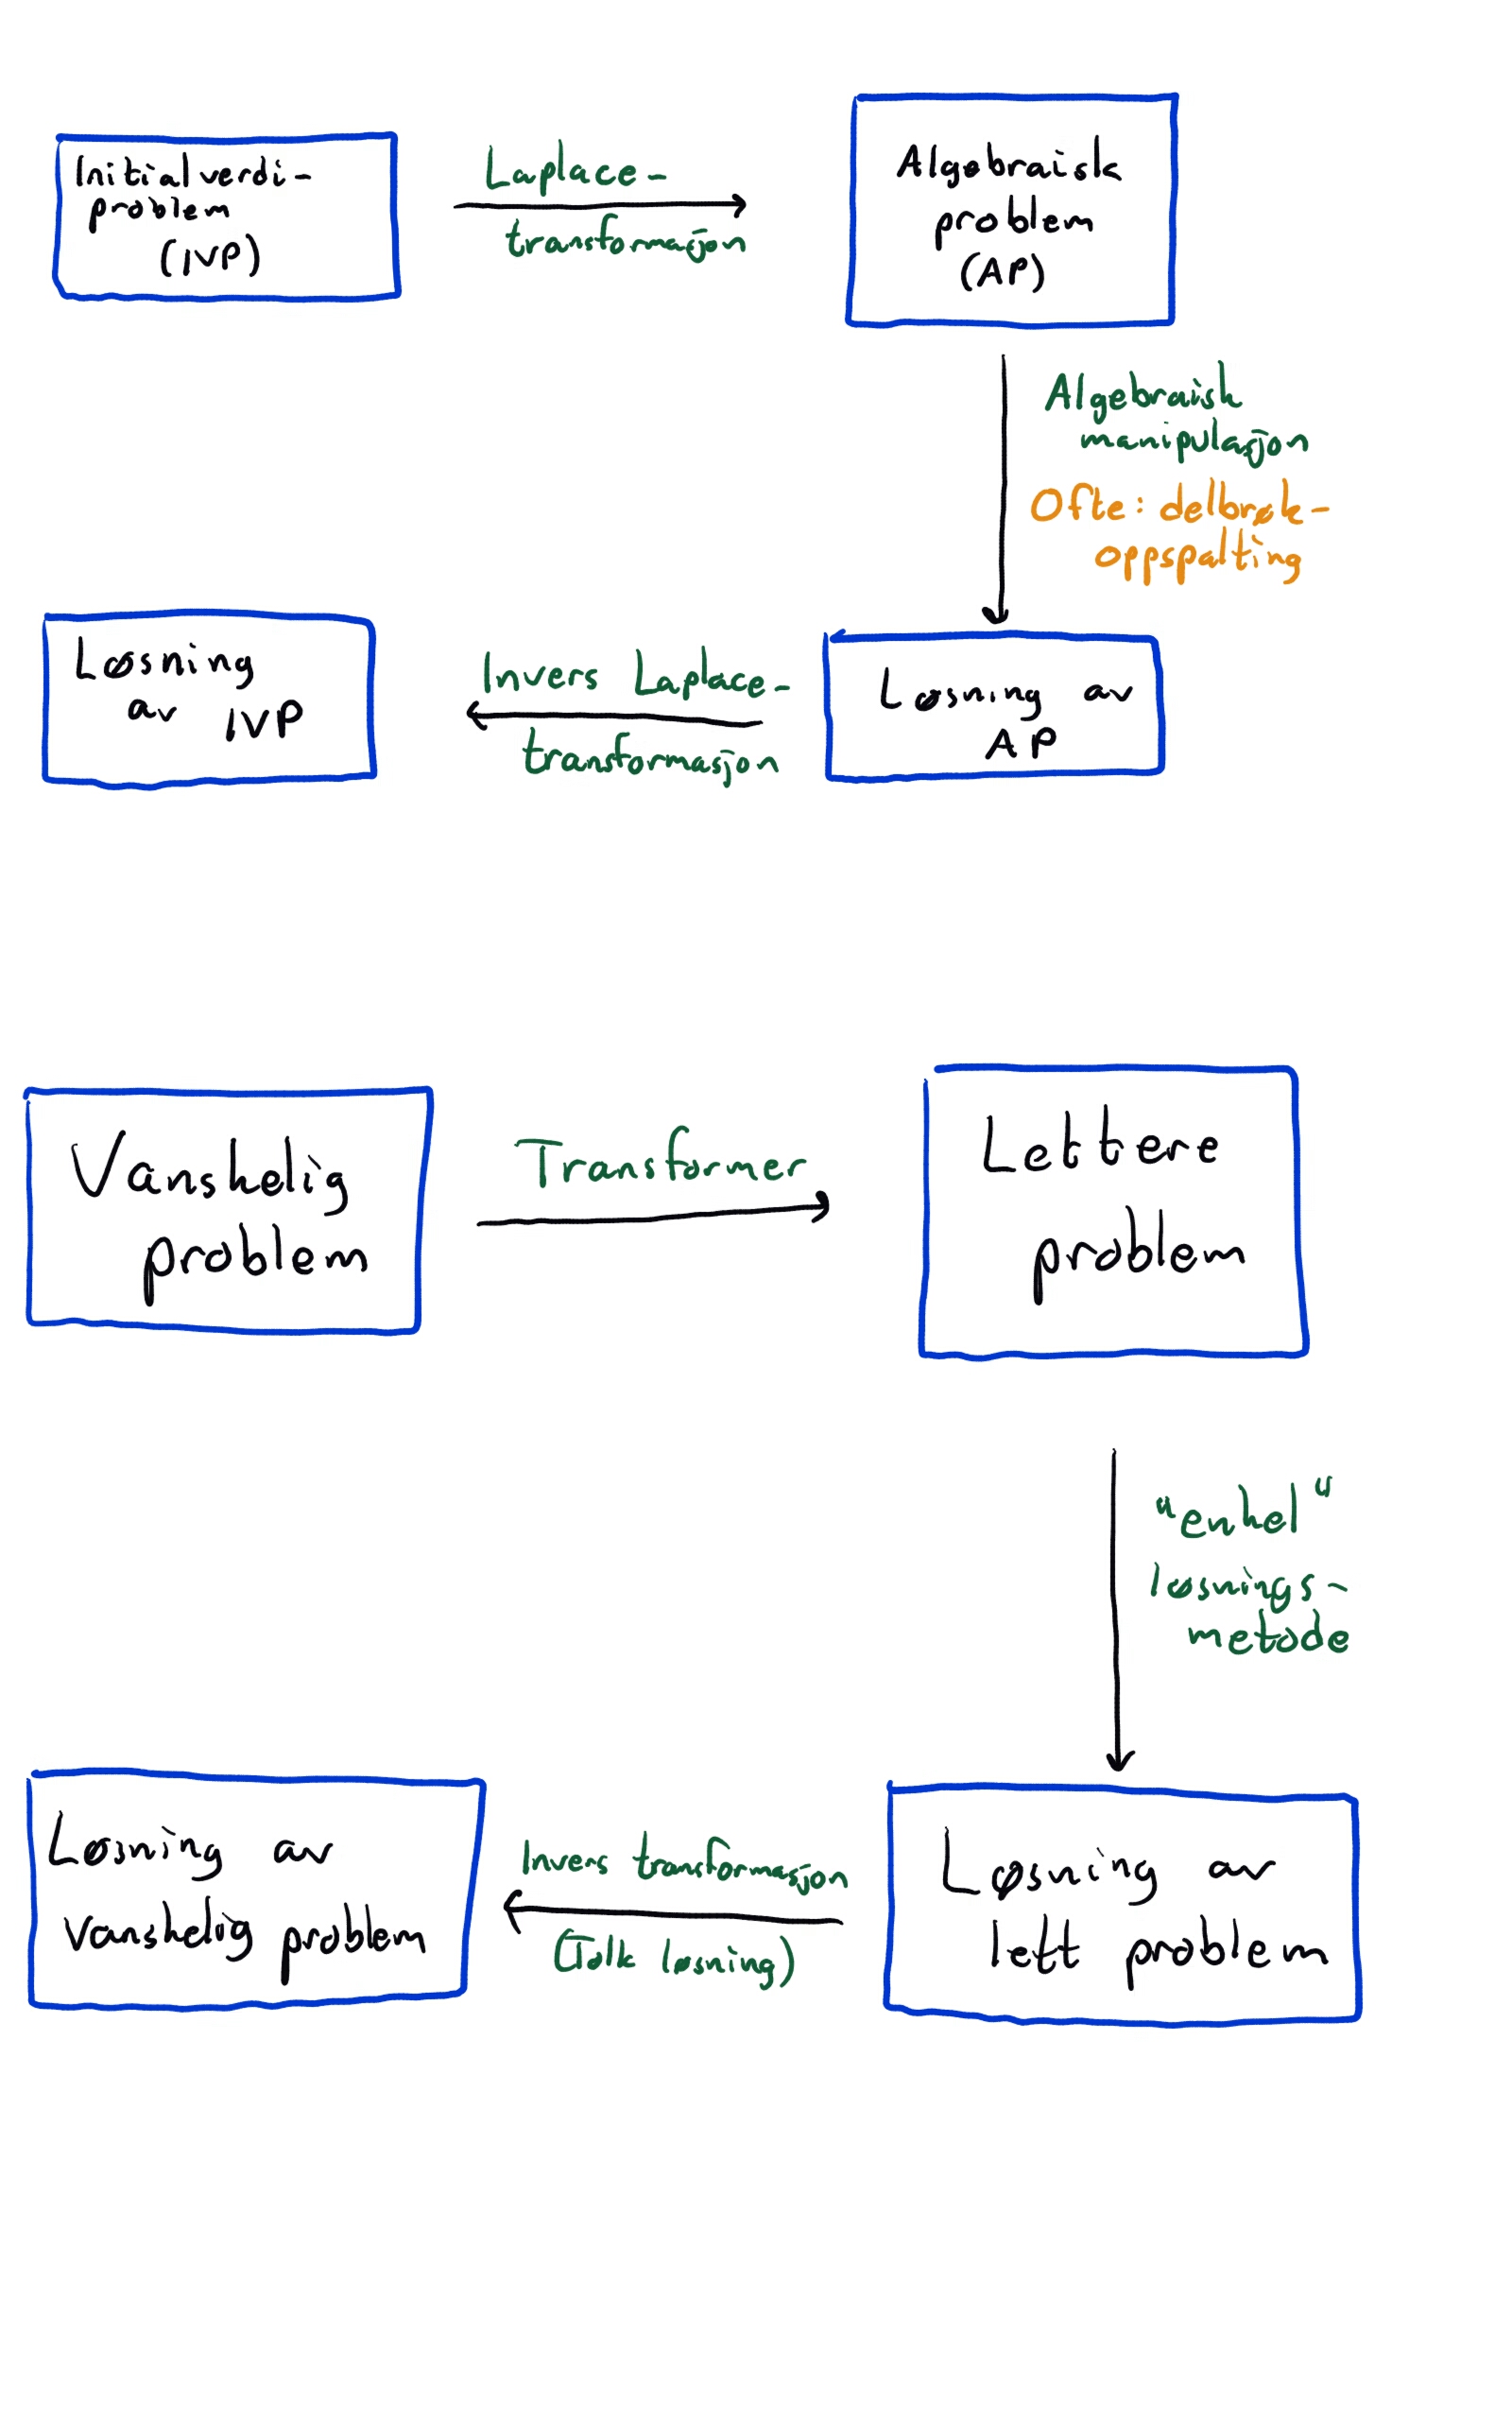 Initialverdi-
problem
(IVP)
Laplace-
transformasjon
Algebraisk
problem
(AP)
Algebraisk
manipulasjon
Ofte: delbrøk-
oppspalting
Løsning av
AP
Invers Laplace-
transformasjon
Løsning
av IVP
Vanskelig
problem
Transformer
Lettere
problem
"enkel"
løsnings-
metode
Løsning av
lett problem
Invers transformasjon
(Tolk løsning)
Løsning av
vanskelig problem